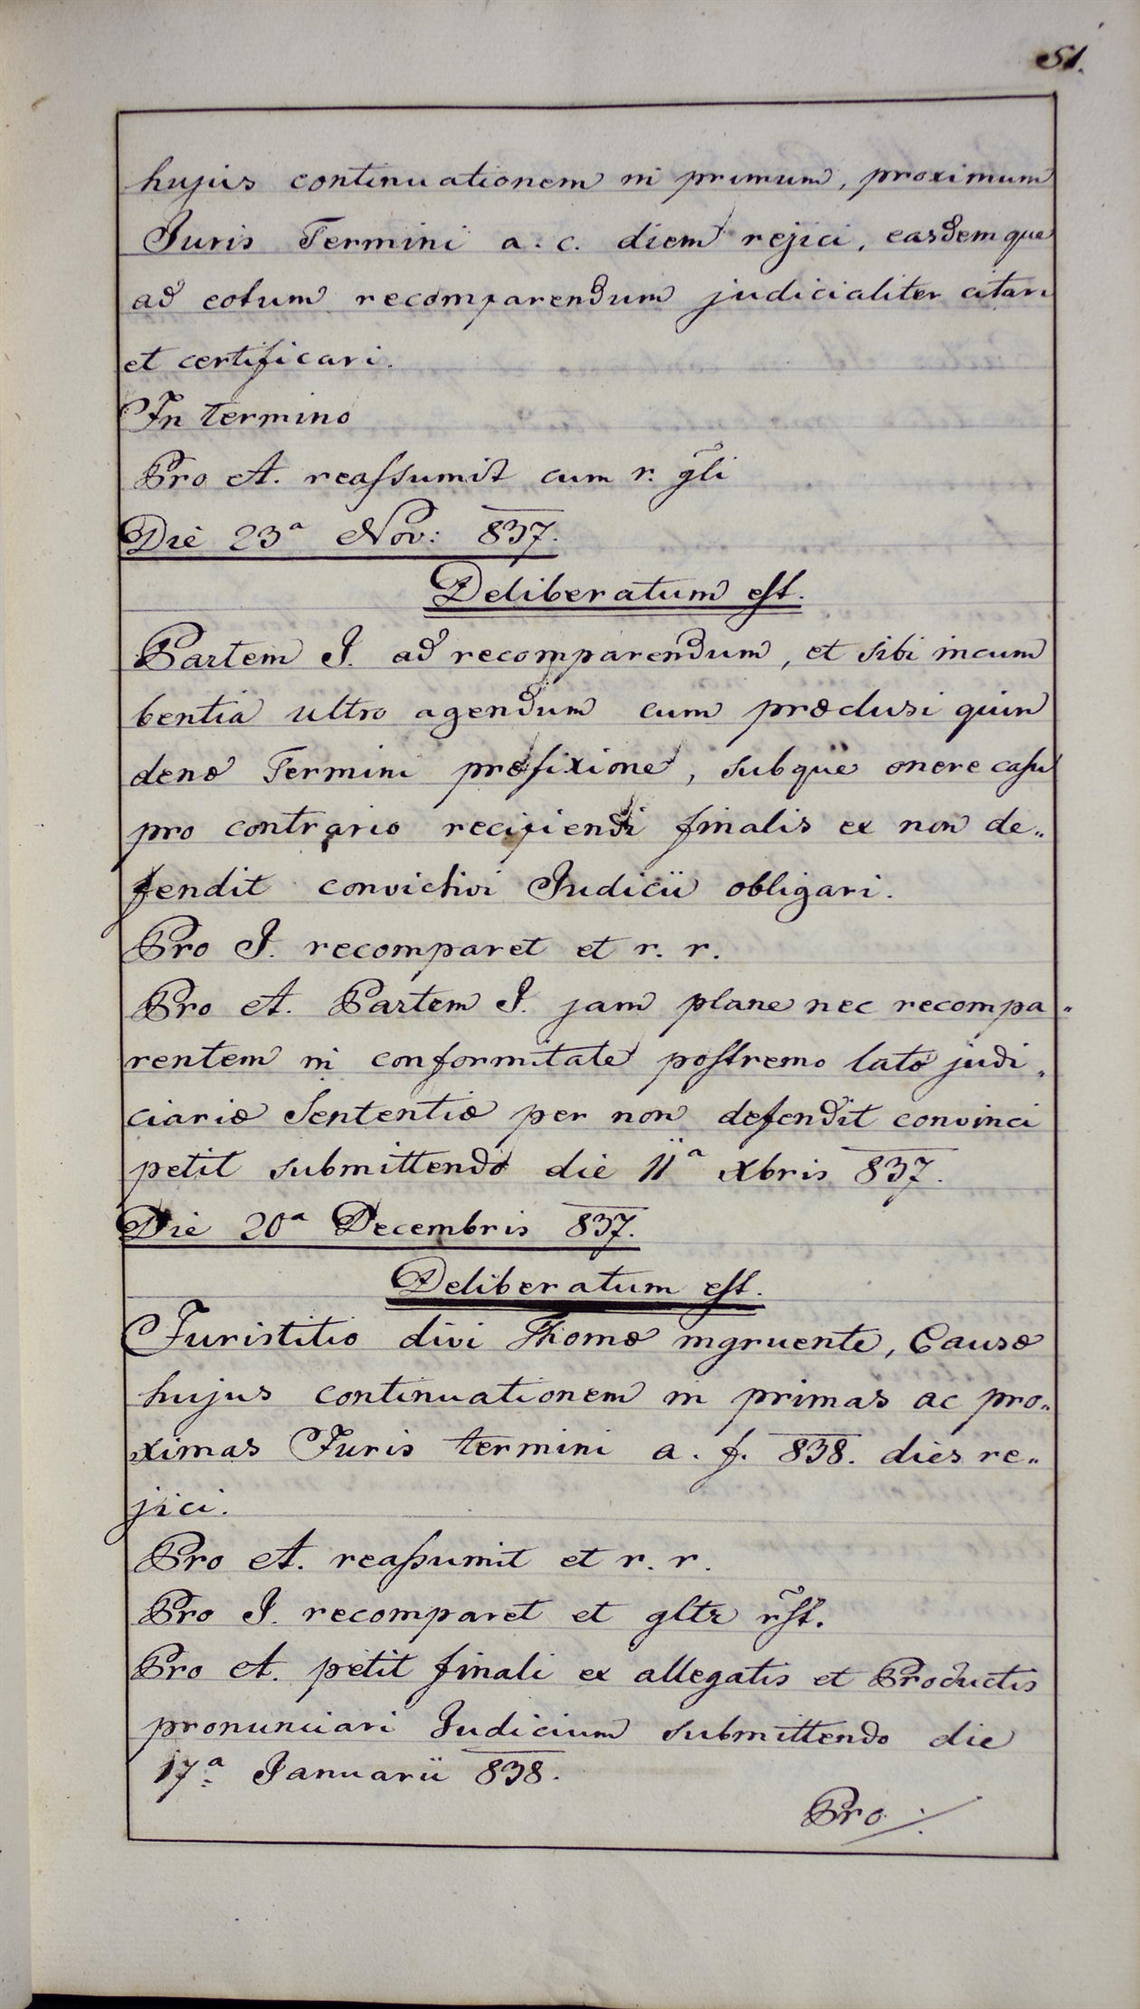 51.
hujus continuationem in primum, proximum
Juris Termini a. c. diem rejici, easdemque
ad eotum recomparendum judicialiter citari
et certificari.
In termino
Pro A. reassumit cum r. gli
Die 23ª Nov: 837.
Deliberatum est.
Partem I. ad recomparendum, et sibi incum
bentia ultro agendum cum præclusi quin
denæ Termini præfixione, subque onere casu
pro contrario recipiendi finalis ex non de„
fendit convictivi Judicii obligari.
Pro I. recomparet et r. r.
Pro A. Partem I. jam plane nec recompa„
rentem in conformitate postremo latæ judi„
ciariæ Sententiæ per non defendit convinci
petit submittendo die 11ª Xbris 837.
Die 20ª Decembris 837.
Deliberatum est.
Juristitio divi Thomæ ingruente, Causæ
hujus continuationem in primas ac pro„
ximas Juris termini a. f. 838. dies re„
jici.
Pro A. reassumit et r. r.
Pro I. recomparet et gltr rst.
Pro A. petit finali ex allegatis et Productis
pronunciari Judicium submittendo die
17ª Januarii 838.
Pro ./.